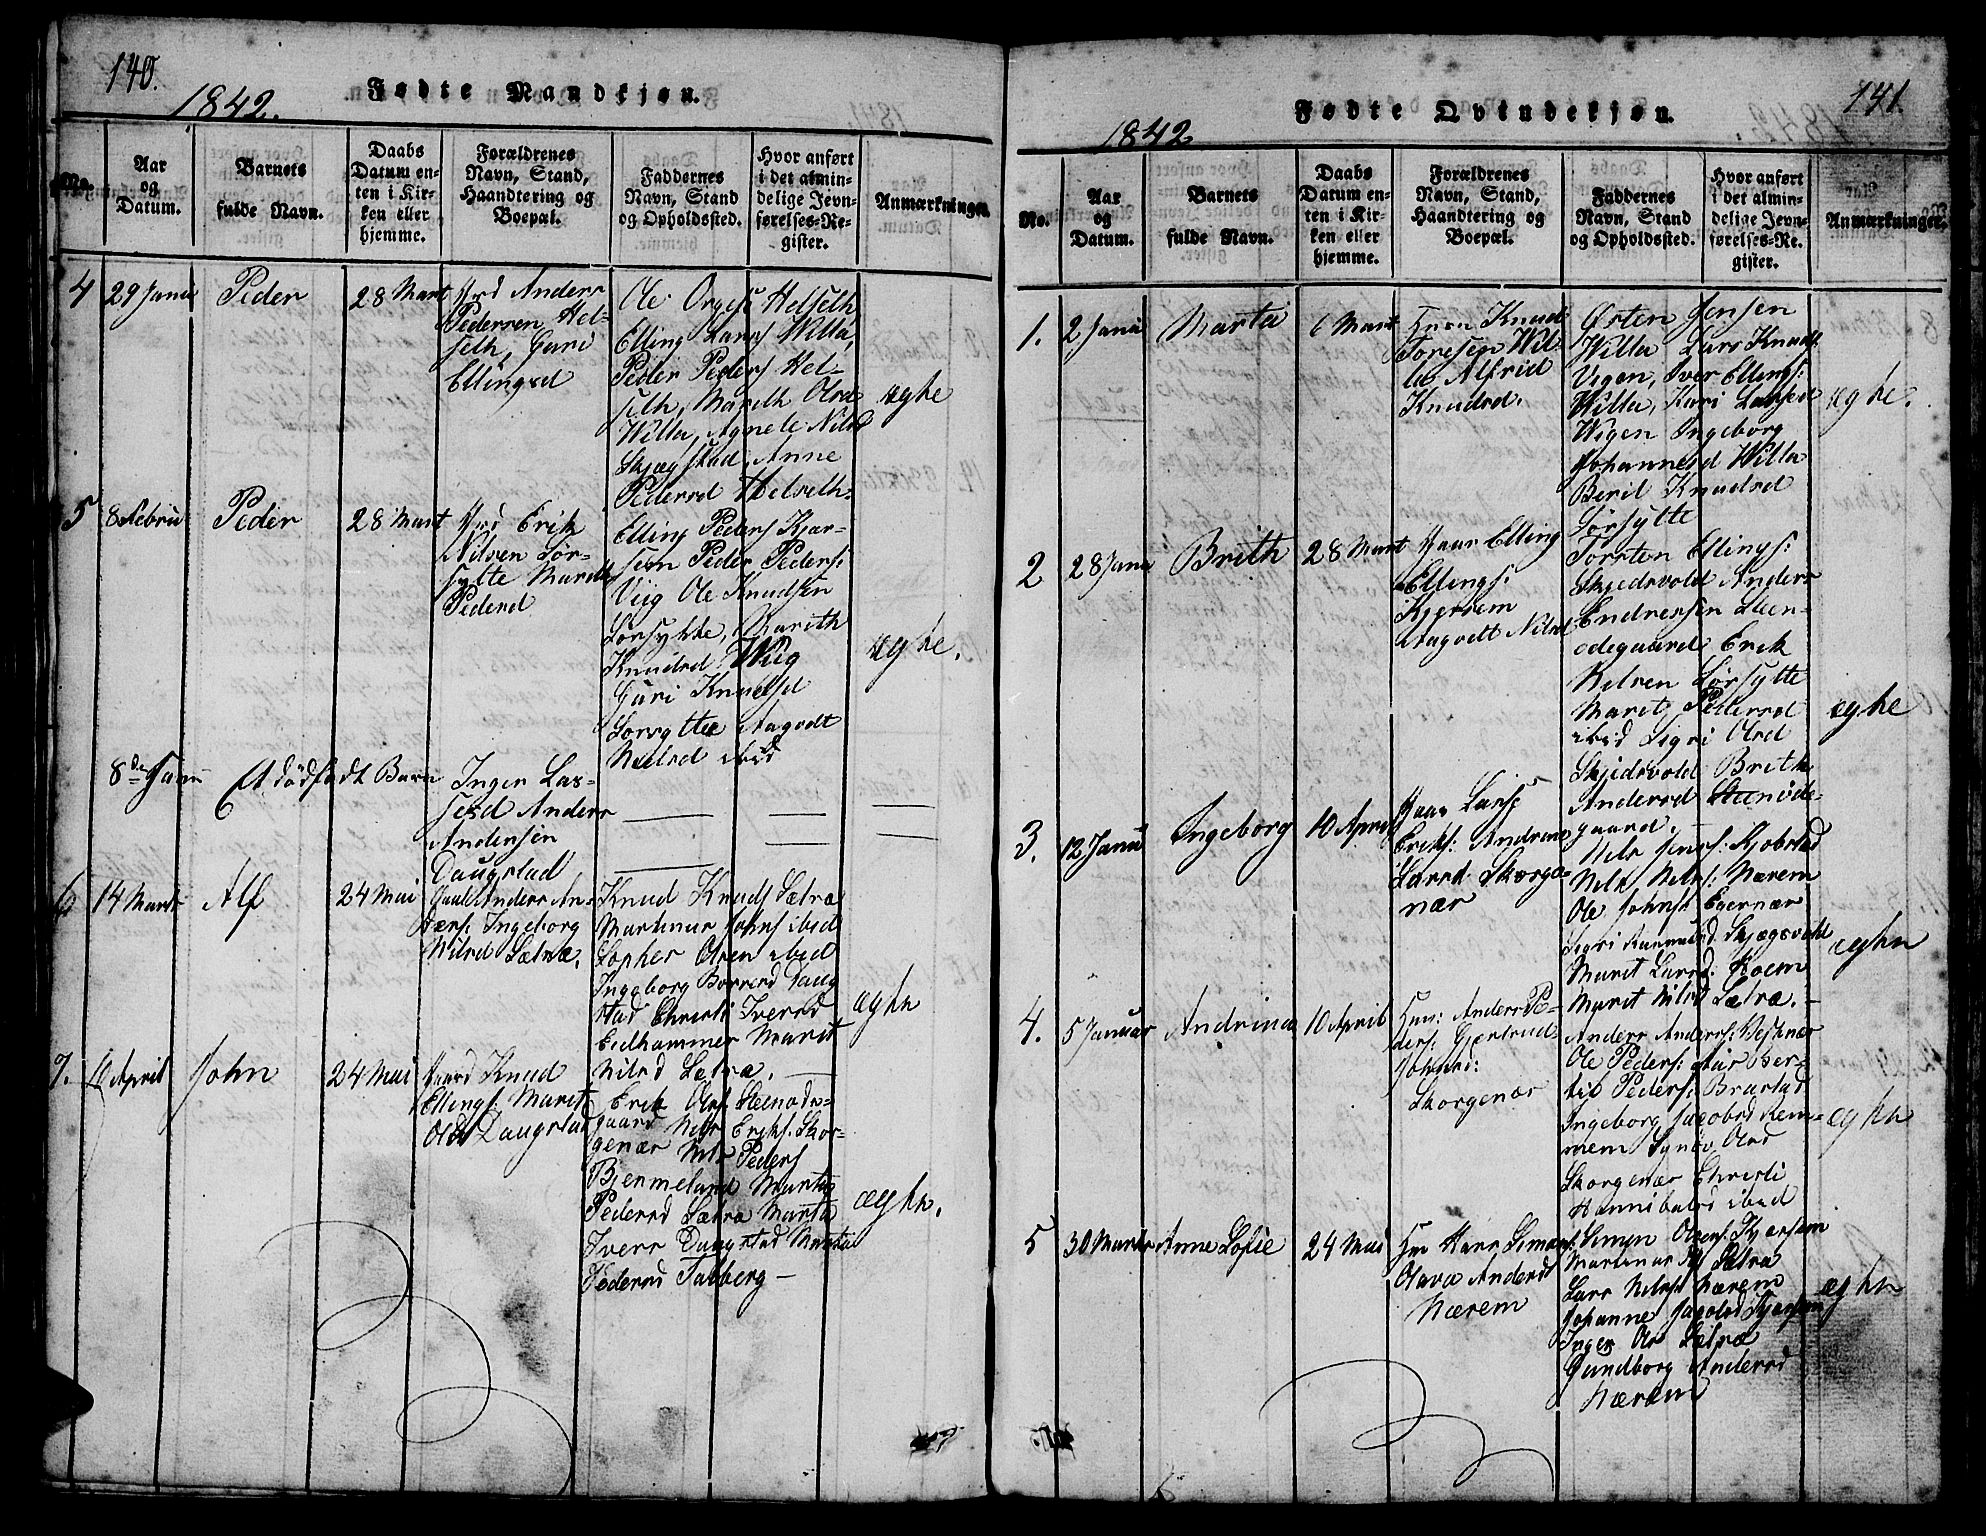 140.
1842.
Fødte Mandkjøn.
No.
Aar
og
Datum.
Barnets
fulde Navn.
Daabs
Datum en-
ten i Kir-
ken eller
hjemme.
Forældrenes
Navn, Stand,
Haandtering og
Boepæl.
Faddernes
Navn, Stand
og Opholdssted.
Hvor anført
i det almin-
delige Jevn-
førelses-Re-
gister.
Anmærkninger.
4
29 Janu
Peder
28 Mart
Anders
Pedersen Hel-
seth, Guri
Ellingsd
Ole Helseth
Elling Lars Willa,
Peder Peders Hel-
seth, Marith Olsd
Willa, Agnete Nilsd
Skjægstad, Anne
Pedersd Helseth
ægte
5
8 Febru
Peder
28 Mart
Erik
Nilsen Sør-
sylte Marith
Pedersd
Elling Peders Kjær-
sem Peder Peders:
Viig Ole Knudsen
Sørsylte, Marith
Knudsd Wiig
Guri Knudsd
Sørsylte Aagodt
Nilsd ibid
ægte.
8de Janu
Et dödfödt Barn
Inger Las-
sesd Anders
Andersen
Daugstad
6
14 Marts
Alf
24 Mai
Anders An-
ders: Ingeborg
Nilsd Sætræ.
Knud Knuds Sætræ
Martinus Johns ibid
Sopher Olsen ibid
Ingeborg Daug
stad Christi Iversd
Eidhammer Marit
Nilsd Sætræ.
ægtn
7.
11 April
John
24 Mai
Knud
Ellings Marit
Olsd Daugstad
Erik Ols Steenøde-
gaard Nils Eriks: Skor-
genær Nils Peders
Bjermeland Marta
Pedersd Sætræ Marta
Ivers Daugstad Marta
Pedersd Talberg
ægtn.
141.
1842
Fødte Qvindekjøn.
No.
Aar
og
Datum.
Barnets
fulde Navn.
Daabs
Datum en-
ten i Kir-
ken eller
hjemme.
Forældrenes
Navn, Stand,
Haandtering og
Boepæl.
Faddernes
Navn, Stand
og Opholdssted.
Hvor anført
i det almin-
delige Jevn-
førelses-Re-
gister.
Anmærkninger.
1.
2 Janu
Marta
6 Mart
Knud
Toresen Wil-
la Alfrid
Knudsd.
Østen Jensen
Willa Lars Knuds
Vigen, Iver Ellings:
Willa, Kari Lassesd
Wigen Ingeborg
Johannesd Willa
Beril Knudsd
Sørsylte
ægte.
2
28 Janu
Brith
28 Mart
Elling
Ellings:
Kjersem
Aagodt Nilsd
Torsten Ellings:
Skjedsvold Anders
Endresen Steen-
ødegaard Erik
Nilsen Sørsylte
Marit Pedersd
ibid Segri Olsd
Skjedsvold Brith
Andersd Steenøde-
gaard.
ægte
3.
12 Janu
Ingeborg
10 April
Lars
Eriks: Andrine
Larsd Skorge-
nær
Nils Jens: Kjobstad
Nils Nils: Nærem
Ole Johns: Egernær
Segri Rasmusd. Skjegsvold
Marit Larsd: Hoem
Marit Nilsd Sætræ.
ægtn
4.
5 Januar
Andrina
10 April
Hus: Anders Pe-
ders: Gjertrud
Johnsd:
Skorgenær
Anders Anders: Vestnær
Ole Peders: Aur Ber-
til Peders: Brastad
Ingeborg Jacobsd Rem-
mem Synøv Olsd
Skorgenær Christi
Hannibalsd ibid
ægtn
5
30 Marts
Anne Sofie
24 Mai
Hans Simons
Olava Andersd
Nærem
Simen Olsen: Kjersem
Martinus Sætræ
Lars Nils: Nærem
Johanne Jacobsd Kjersem
Inger Ols Sætræ
Gundborg Andersd
Nærem
ægtn